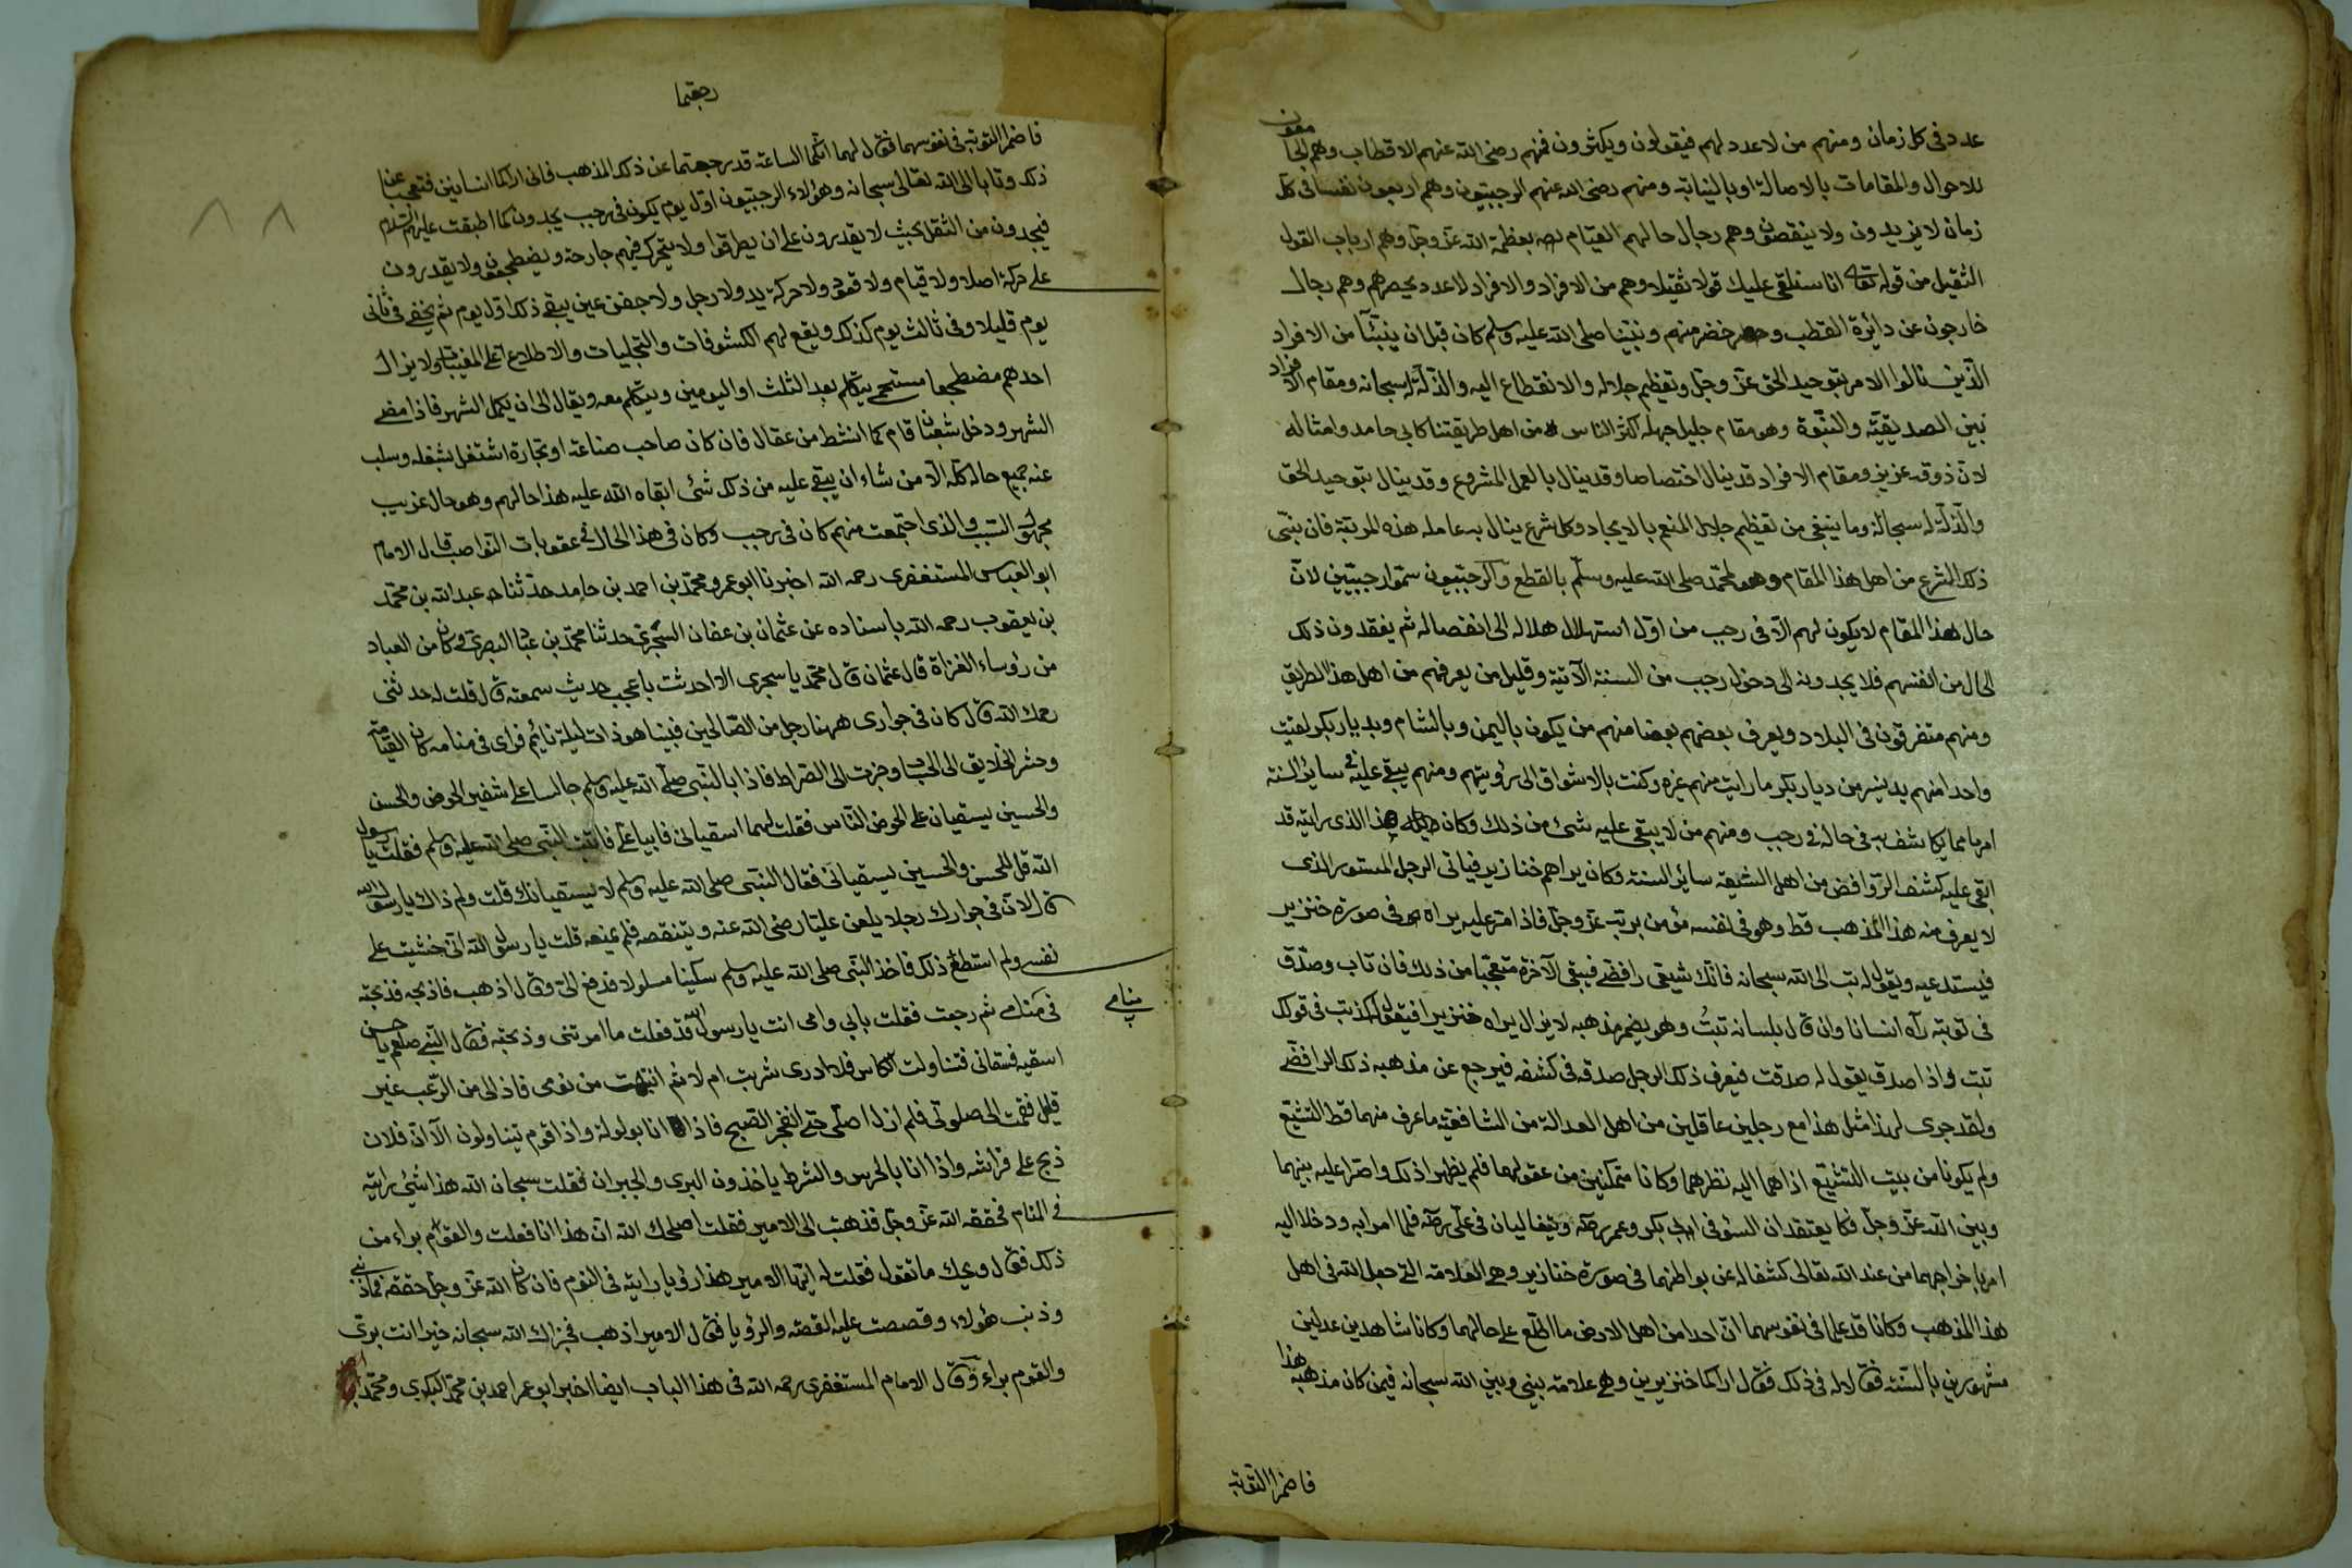 عدد فى كل زمان ومنهم من لا عدد لهم فيقولون ويكثرون فمنهم رضى الله عنهم الاقطاب وهم الجامعون
للاحوال والمقامات بالاصالة او بالنيابة ومنهم رضى الله عنهم الرجبيون وهم اربعون نفسا فى كل
زمان لا يزيدون ولا ينقصون وهم رجال حالهم القيام بعظمة الله عز وجل وهم ارباب القول
الثقيل من قوله تعالى انا سنلقى عليك قولا ثقيلا وهم من الافراد والافراد لا عدد يحصرهم وهم رجال
خارجون عن دائرة القطب وخضر منهم ونبينا صلى الله عليه وسلم كان قبل ان ينبأ من الافراد
الذين نالوا الامر بتوحيد الحق عز وجل وتعظيم جلاله والانقطاع اليه والذلة له سبحانه ومقام الافراد
بين الصديقية والنبوة وهو مقام جليل جهله اكثر الناس من اهل طريقتنا كابى حامد وامثاله
لان ذوقه عزيز ومقام الافراد قد ينال اختصاصا وقد ينال بالعمل المشروع وقد ينال بتوحيد الحق
والذلة له سبحانه وما ينبغى من تعظيم جلال المنعم بالايجاد وكل شرع ينال به عامله هذه المرتبة فان نبى
ذلك الشرع من اهل هذا المقام وهو لمحمد صلى الله عليه وسلم بالقطع والرجبيون سموا رجبيين لان
حال هذا المقام لا يكون لهم الا فى رجب من اول استهلال هلاله الى انفصاله ثم يفقدون ذلك
الحال من انفسهم فلا يجدونه الى دخول رجب من السنة الآتية وقليل من يعرفهم من اهل هذا الطريق
ومنهم متفرقون فى البلاد ويعرف بعضهم بعضا منهم من يكون باليمن وبالشام وبديار بكر لقيت
واحدا منهم بدنيسر من ديار بكر ما رايت منهم غيره وكنت بالاشواق الى رؤيتهم ومنهم يبقى عليه فى ساير السنة
امر ما مما يكاشف به فى حاله فى رجب ومنهم من لا يبقى عليه شئ من ذلك وكان هذا الذى رايته قد
ابقى عليه كشف الروافض من اهل الشيعة ساير السنة وكان يراهم خنازير فياتى الرجل المستور الذى
لا يعرف منه هذا المذهب قط وهو فى نفسه مؤمن بربه عز وجل فاذا مر عليه يراه فى صورة خنزير
فيستدعيه ويقول له تب الى الله سبحانه فانك شيعى رافضى فيبقى الآخر متعجبا من ذلك فان تاب وصدق
فى توبته رآه انسانا وان قال بلسانه تبت وهو يضمر مذهبه لا يزال يراه خنزيرا فيقول كذبت فى قولك
تبت واذا صدق يقول له صدقت فيعرف ذلك الرجل صدقه فى كشفه فيرجع عن مذهبه ذلك الرافضى
ولقد جرى لهذا مثل هذا مع رجلين عاقلين من اهل العدالة من الشافعية ما عرف منهما قط التشيع
ولم يكونا من بيت التشيع اذاهما اليه نظرهما وكانا متمكنين من عقولهما فلم يظهرا ذلك واصرا عليه بينهما
وبين الله عز وجل فكانا يعتقدان السوء فى ابى بكر وعمر ويتغاليان فى على فلما مرا به ودخلا اليه
امر باخراجهما من عند الله تعالى كشف له عن بواطنهما فى صورة خنازير وهى العلامة التى جعل الله فى اهل
هذا المذهب وكانا قد علما فى نفوسهما ان احدا من اهل الارض ما اطلع على حالهما وكانا شاهدين عدلين
مشهورين بالسنة فقالا له فى ذلك فقال اراكما خنزيرين وهى علامة بينى وبين الله سبحانه فيمن كان مذهبه هذا
فاضمرا التوبة
رجعتما
فاضمرا التوبة فى نفوسهما فقال لهما انكما الساعة قد رجعتما عن ذلك المذهب فانى اراكما انسانين فتعجبا عن
ذلك وتابا الى الله تعالى سبحانه وهؤلاء الرجبيون اول يوم يكون فى رجب يجدون كانما اطبقت عليهم السماء
فيجدون من الثقل بحيث لا يقدرون على ان يطرقوا ولا يتحرك فيهم جارحة ويضطجعون ولا يقدرون
على حركة اصلا ولا قيام ولا قعود ولا حركة يد ولا رجل ولا جفن عين يبقى ذلك اول يوم ثم يخف فى ثانى
يوم قليلا وفى ثالث يوم كذلك ويقع لهم الكشوفات والتجليات والاطلاع على المغيبات ولا يزال
احدهم مضطجعا مسجى يتكلم بعد الثلث او اليومين ويتكلم معه ويقال الى ان يكمل الشهر فاذا مضى
الشهر ودخل شعبان قام كما انشط من عقال فان كان صاحب صناعة او تجارة اشتغل بشغله وسلب
عنه جميع حاله كله الا من شاء ان يبقى عليه من ذلك شئ ابقاه الله عليه هذا حالهم وهو حال غريب
مجهول السبب والذى اجتمعت منهم كان فى رجب وكان فى هذا الحال فى عقوبات النواصب قال الامام
ابو العباس المستغفرى رحمه الله اخبرنا ابو عمرو محمد بن احمد بن حامد حدثنا عبد الله بن محمد
بن يعقوب رحمه الله باسناده عن عثمان بن عفان السجزى حدثنا محمد بن عباد البصرى وكان من العباد
من رؤساء الغزاة قال عثمان قال محمد يا سجزى الا احدثك باعجب حديث سمعته قال قلت له حدثنى
رحمك الله قال كان فى جوارى ههنا رجل من الصالحين فبينا هو ذات ليلة نائم فراى فى منامه كان القيامة
وحشر الخلايق الى الحساب وجزت الى الصراط فاذا بالنبى صلى الله عليه وسلم جالسا على شفير الحوض والحسن
والحسين يسقيان على الحوض الناس فقلت لهما اسقيانى فابيا على فاتيت النبى صلى الله عليه وسلم فقلت يا رسول
الله قل للحسن والحسين يسقيانى فقال النبى صلى الله عليه وسلم لا يسقيانك قلت ولم ذاك يا رسول الله
قال لان فى جوارك رجلا يلعن عليا رضى الله عنه ويتنقصه فلم تمنعه قلت يا رسول الله انى خشيت على
نفسى ولم استطع ذلك فاخذ النبى صلى الله عليه وسلم سكينا مسلولا فدفع الى وقال اذهب فاذبحه فذبحته
منامى
فى منامى ثم رجعت فقلت بابى وامى انت يا رسول الله قد فعلت ما امرتنى وذبحته فقال النبى صلعم يا حسن
اسقيه فسقانى فتناولت الكاس فلا ادرى شربت ام لا ثم انتبهت من نومى فاذا بى من الرعب غير
قليل فقمت الى صلوتى فلم ازل اصلى حتى انفجر الصبح فاذا انا بولولة واذا قوم يتناولون الا ان فلان
ذبح على فراشه واذا انا بالحرس والشرط ياخذون البرى والجيران فقلت سبحان الله هذا شئ رايته
فى المنام فحققه الله عز وجل فذهبت الى الامير فقلت اصلحك الله ان هذا انا فعلت والقوم براء من
ذلك فقال ويحك ما تقول فقلت له ايها الامير هذا رؤيا رايته فى النوم فان كان الله عز وجل حققه فما ذنبى
وذنب هؤلاء وقصصت عليه القصة والرؤيا فقال الامير اذهب فجزاك الله سبحانه خيرا انت برى
والقوم براء وقال الامام المستغفرى رحمه الله فى هذا الباب ايضا اخبر ابو عمر احمد بن محمد البكرى ومحمد